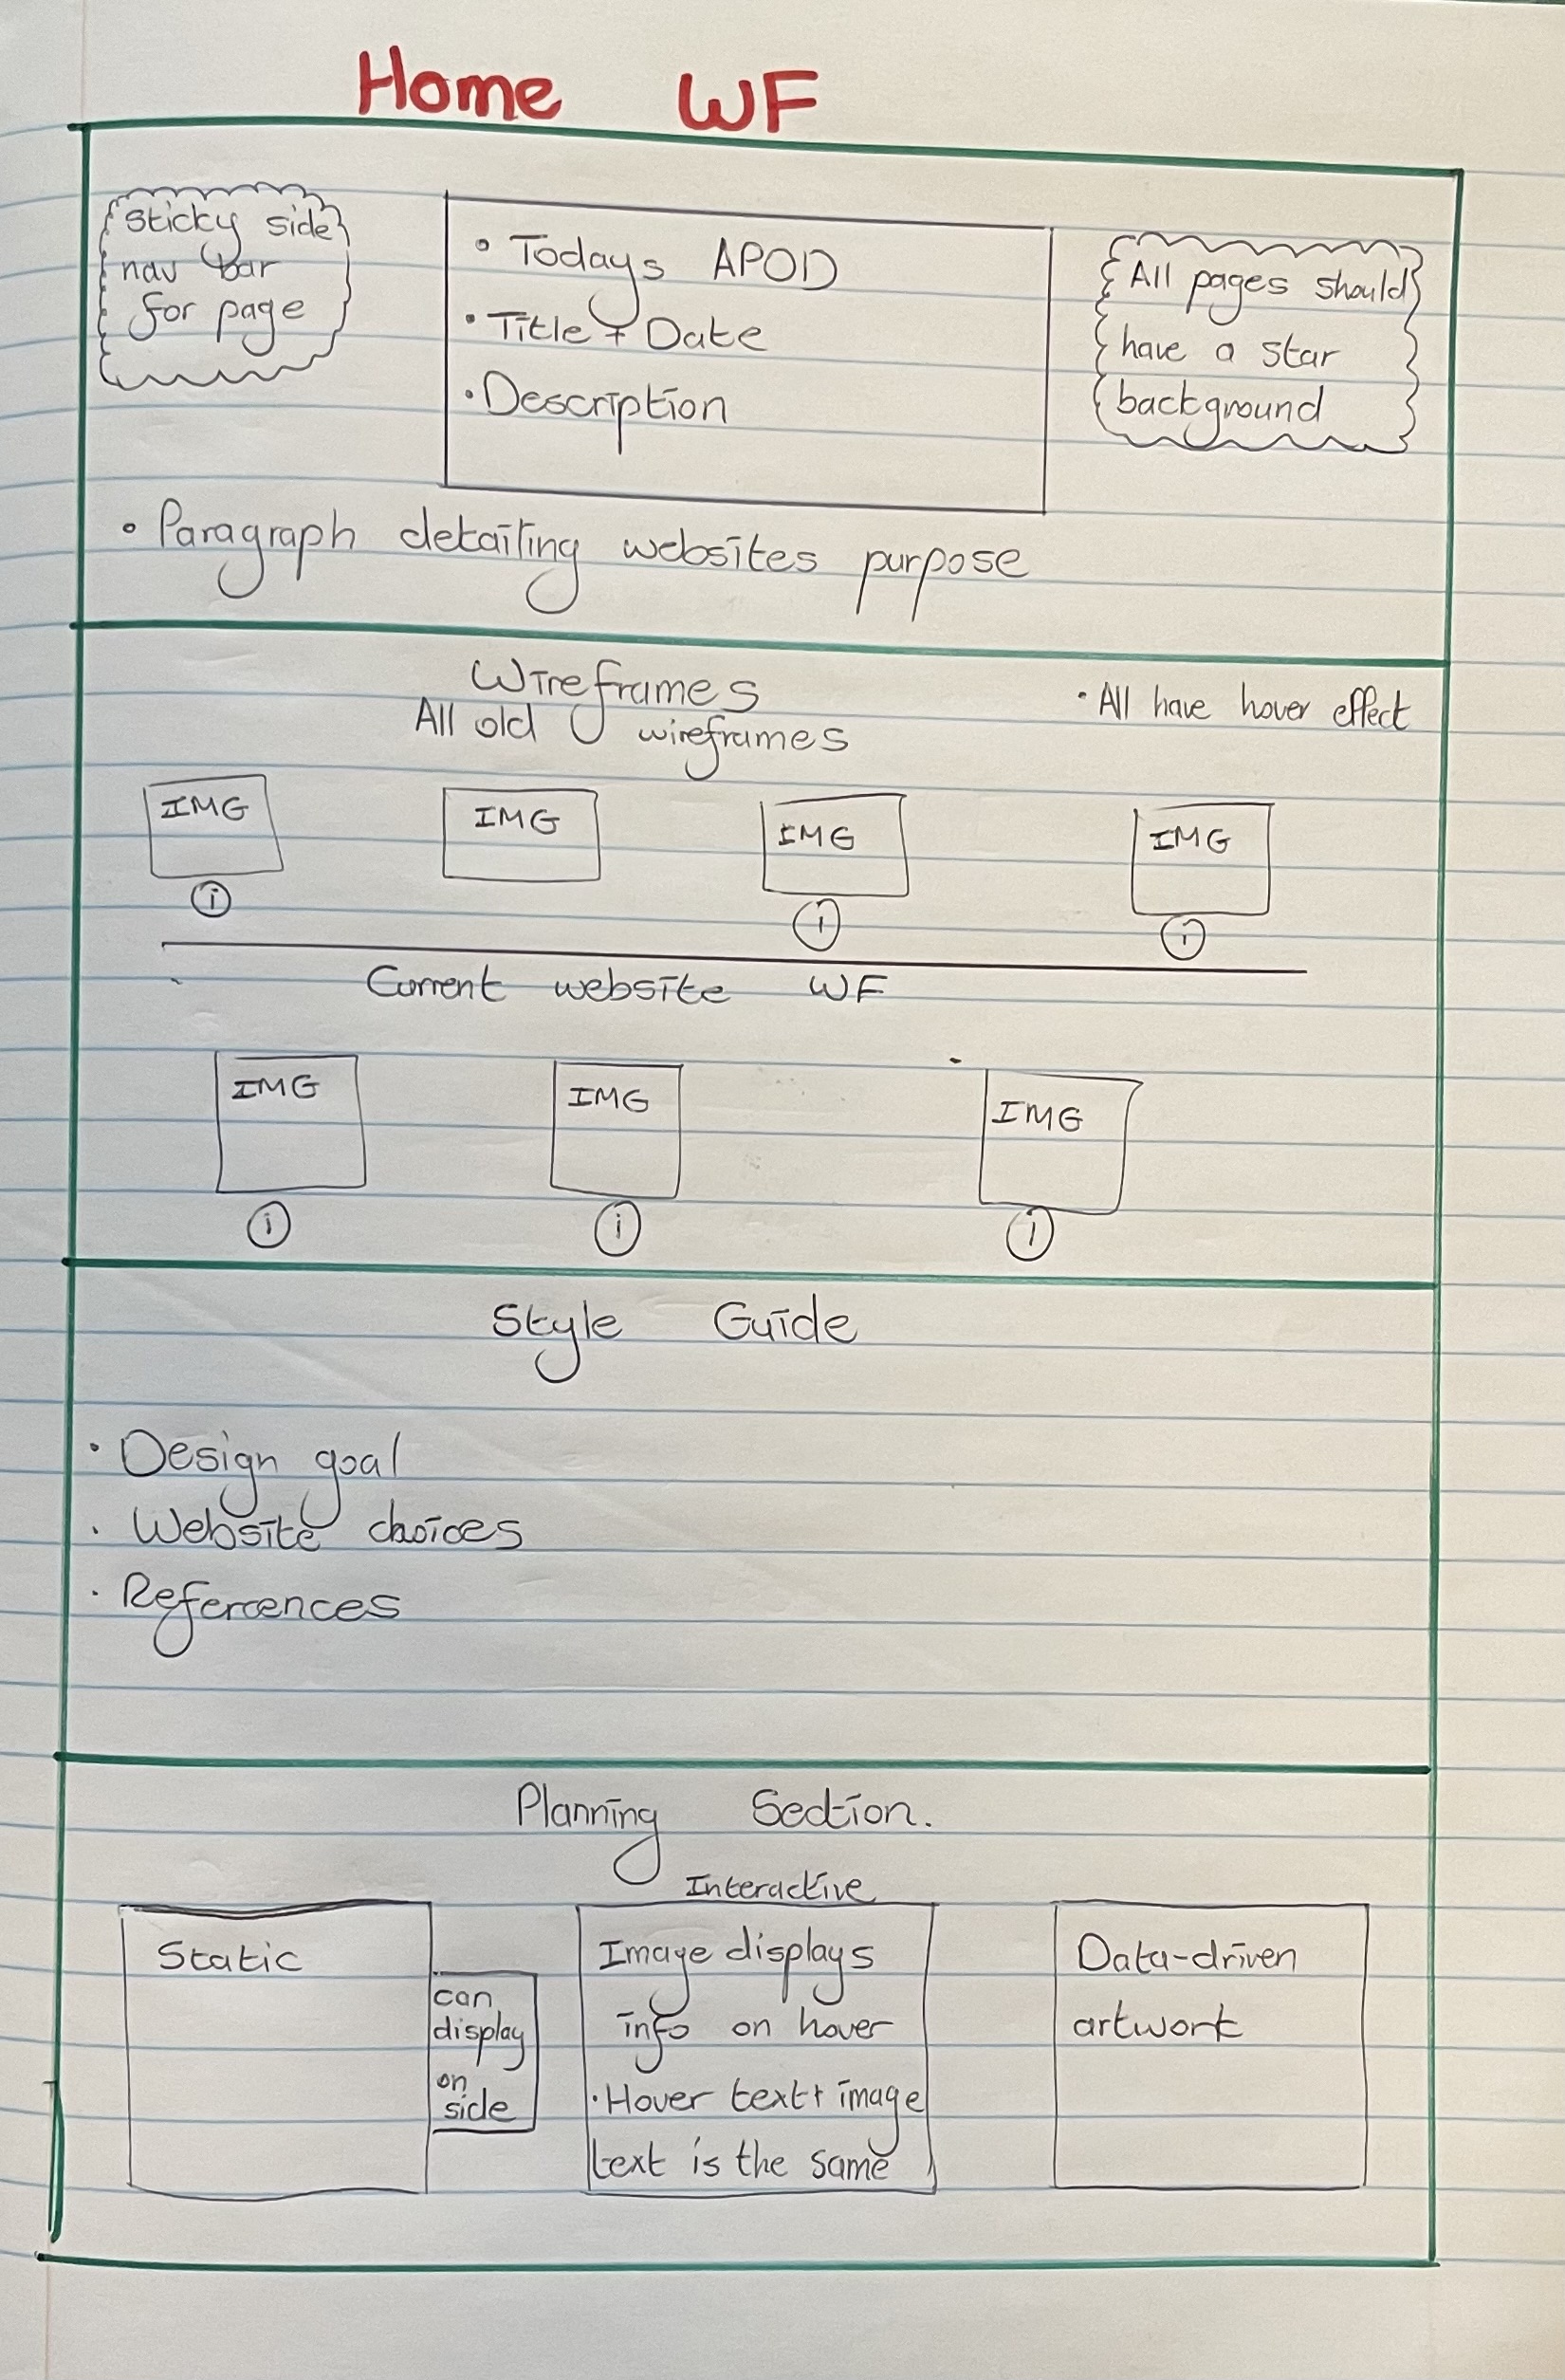 Home WF
sticky side
nav bar
for page
• Todays APOD
• Title + Date
• Description
All pages should
have a star
background
• Paragraph detailing websites purpose
Wireframes
All old wireframes
• All have hover effect
IMG
IMG
IMG
IMG
i
i
i
Current website WF
IMG
IMG
IMG
i
i
i
Style Guide
• Design goal
• Website choices
• References
Planning Section.
Static
can
display
on
side
Interactive
Image displays
info on hover
• Hover text + image
text is the same
Data-driven
artwork